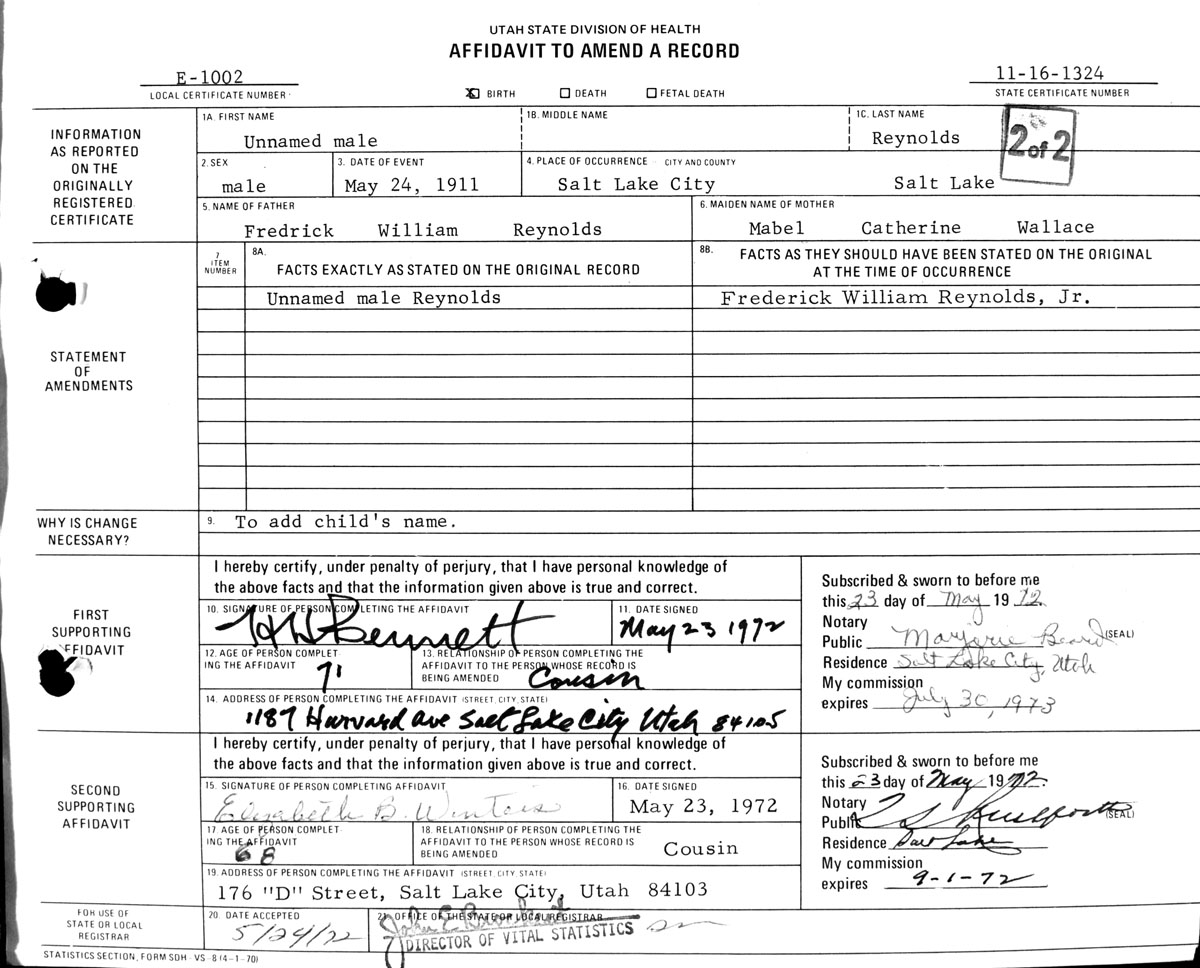 UTAH STATE DIVISION OF HEALTH
AFFIDAVIT TO AMEND A RECORD
E-1002
LOCAL CERTIFICATE NUMBER
X BIRTH DEATH FETAL DEATH
11-16-1324
STATE CERTIFICATE NUMBER
INFORMATION
AS REPORTED
ON THE
ORIGINALLY
REGISTERED
CERTIFICATE
1A. FIRST NAME
Unnamed male
1B. MIDDLE NAME
1C. LAST NAME
Reynolds
2 of 2
2. SEX
male
3. DATE OF EVENT
May 24, 1911
4. PLACE OF OCCURRENCE CITY AND COUNTY
Salt Lake City Salt Lake
5. NAME OF FATHER
Fredrick William Reynolds
6. MAIDEN NAME OF MOTHER
Mabel Catherine Wallace
STATEMENT
OF
AMENDMENTS
7
ITEM
NUMBER
8A.
FACTS EXACTLY AS STATED ON THE ORIGINAL RECORD
8B.
FACTS AS THEY SHOULD HAVE BEEN STATED ON THE ORIGINAL
AT THE TIME OF OCCURRENCE
Unnamed male Reynolds
Frederick William Reynolds, Jr.
WHY IS CHANGE
NECESSARY?
9. To add child's name.
FIRST
SUPPORTING
AFFIDAVIT
I hereby certify, under penalty of perjury, that I have personal knowledge of
the above facts and that the information given above is true and correct.
10. SIGNATURE OF PERSON COMPLETING THE AFFIDAVIT
Bennett
11. DATE SIGNED
May 23 1972
12. AGE OF PERSON COMPLET-
ING THE AFFIDAVIT
71
13. RELATIONSHIP OF PERSON COMPLETING THE
AFFIDAVIT TO THE PERSON WHOSE RECORD IS
BEING AMENDED
Cousin
14. ADDRESS OF PERSON COMPLETING THE AFFIDAVIT (STREET, CITY, STATE)
1187 Harvard Ave Salt Lake City Utah 84105
Subscribed & sworn to before me
this 23 day of May 1972
Notary
Public Marjorie Beard (SEAL)
Residence Salt Lake City, Utah
My commission
expires July 30, 1973
SECOND
SUPPORTING
AFFIDAVIT
I hereby certify, under penalty of perjury, that I have personal knowledge of
the above facts and that the information given above is true and correct.
15. SIGNATURE OF PERSON COMPLETING AFFIDAVIT
Elizabeth B. Winters
16. DATE SIGNED
May 23, 1972
17. AGE OF PERSON COMPLET-
ING THE AFFIDAVIT
68
18. RELATIONSHIP OF PERSON COMPLETING THE
AFFIDAVIT TO THE PERSON WHOSE RECORD IS
BEING AMENDED
Cousin
19. ADDRESS OF PERSON COMPLETING THE AFFIDAVIT (STREET, CITY, STATE)
176 "D" Street, Salt Lake City, Utah 84103
Subscribed & sworn to before me
this 23 day of May 1972
Notary
Public (SEAL)
Residence Salt Lake
My commission
expires 9-1-72
FOR USE OF
STATE OR LOCAL
REGISTRAR
20. DATE ACCEPTED
5/24/72
21. OFFICE OF THE STATE OR LOCAL REGISTRAR
John E. Brockert
DIRECTOR OF VITAL STATISTICS
STATISTICS SECTION, FORM SDH - VS - 8 (4-1-70)